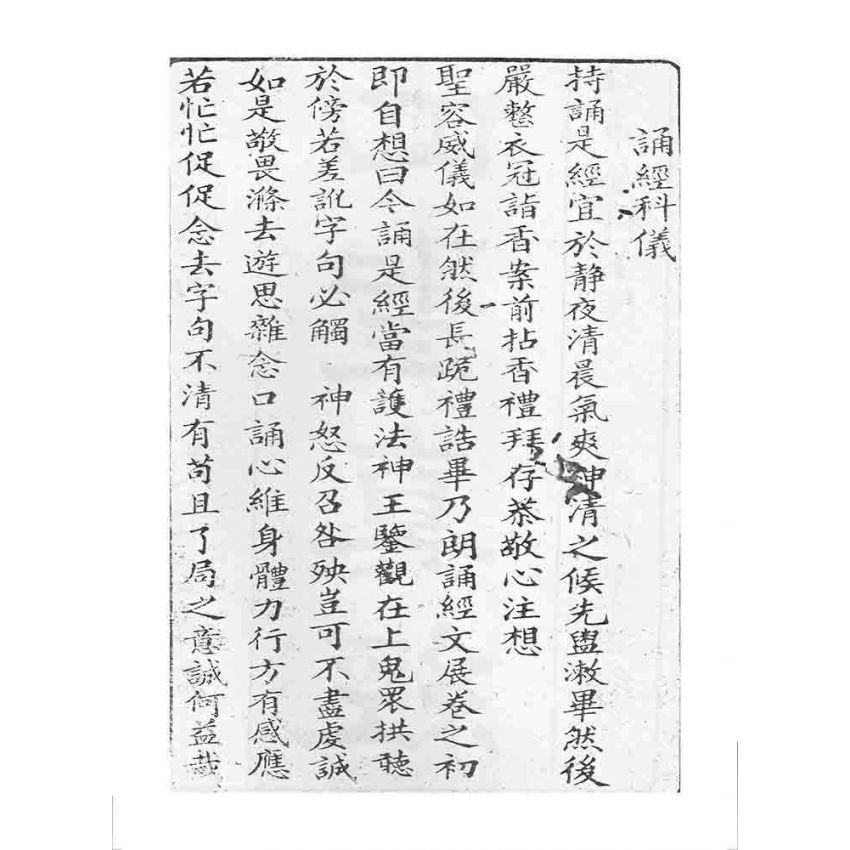 誦經科儀
持誦是經宜於靜夜清晨氣爽神清之候先盥漱畢然後
嚴整衣冠詣香案前拈香禮拜存恭敬心注想
聖容威儀如在然後長跪禮誥畢乃朗誦經文展卷之初
即自想曰今誦是經當有護法神王鑒觀在上鬼眾拱聽
於傍若差訛字句必觸　神怒反召咎殃豈可不盡虔誠
如是敬畏滌去遊思雜念口誦心維身體力行方有感應
若忙忙促促念去字句不清有苟且了局之意誠何益哉